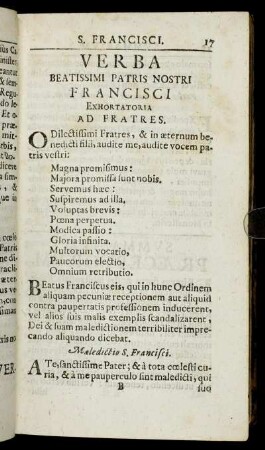 S. FRANCISCI. 17
VERBA
BEATISSIMI PATRIS NOSTRI
FRANCISCI
EXHORTATORIA
AD FRATRES.
O Dilectissimi Fratres, & in æternum be-
nedicti filii, audite me, audite vocem pa-
tris vestri:
Magna promisimus:
Majora promissa sunt nobis,
Servemus hæc:
Suspiremus ad illa,
Voluptas brevis:
Pœna perpetua.
Modica passio:
Gloria infinita.
Multorum vocatio,
Paucorum electio,
Omnium retributio.
Beatus Franciscus eis, qui in hunc Ordinem
aliquam pecuniæ receptionem aut aliquid
contra paupertatis professionem inducerent,
vel alios suis malis exemplis scandalizarent,
Dei & suam maledictionem terribiliter impre-
cando aliquando dicebat.
Maledictio S. Francisci.
A Te, sanctissime Pater; & à tota cœlesti cu-
ria, & à me pauperculo sint maledicti, qui
B suo